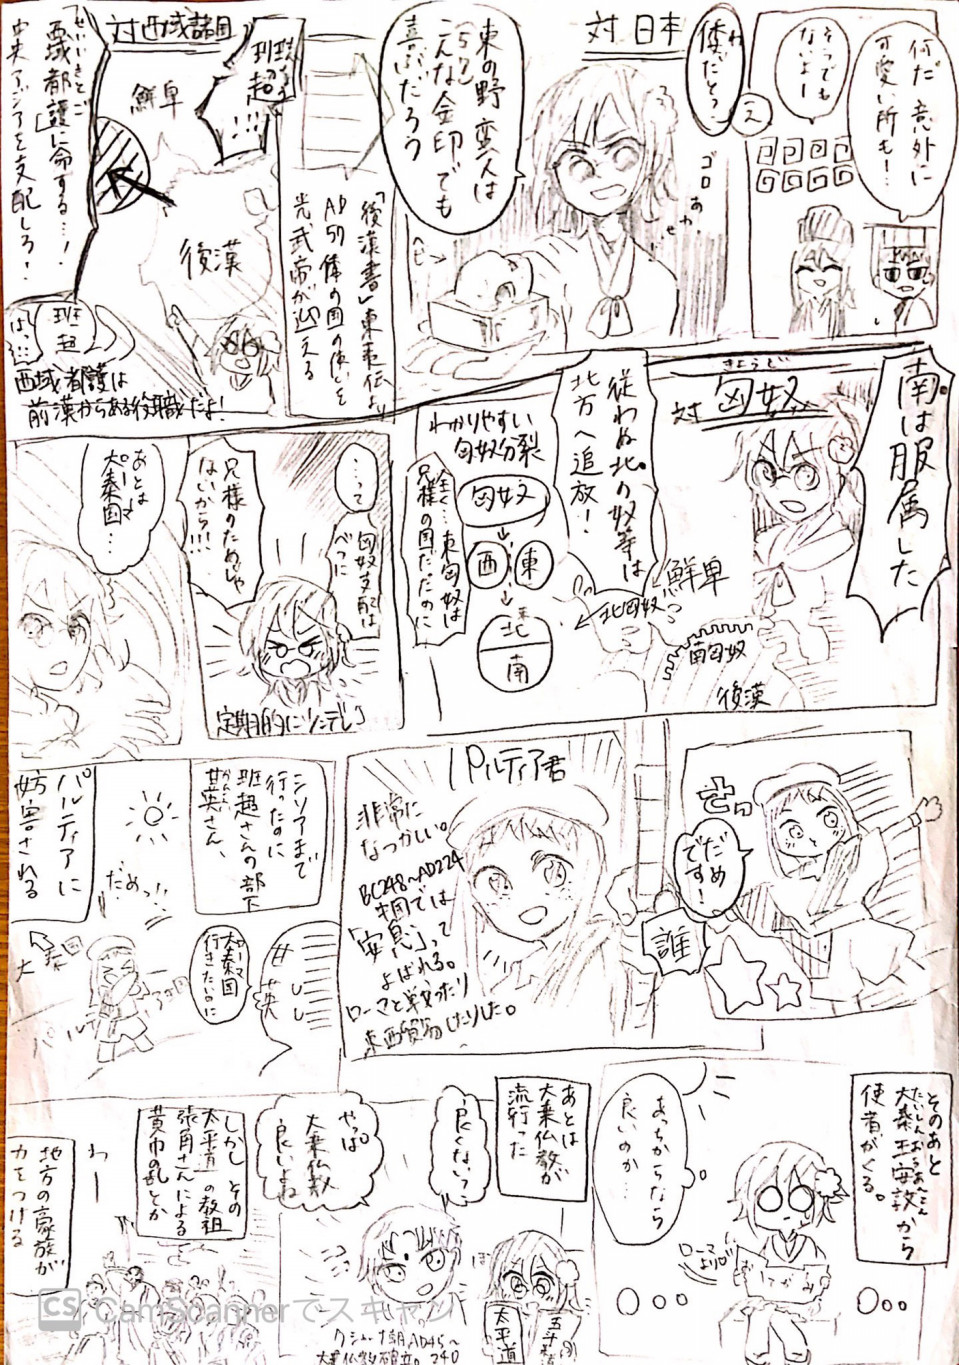 何だ意外に
可愛い所も!…
そうでも
ないよー
え
倭だとう?
わ
対日本
ゴロ
東の野蛮人は
こんな金印でも
喜ぶだろう
「後漢書」東夷伝より
AD57倭の国の使いを
光武帝が迎える
対西域諸国
班超…!!!
鮮卑
後漢
せいいきとご
「西域都護」に命する…!
中央アジアを支配しろ!
班超
はっ…
西域都護は
前漢からある役職だよ!
南は服属した
きょうど
対匈奴
従わぬ北の奴等は
北方へ追放!
鮮卑
北匈奴
南匈奴
後漢
わかりやすい
匈奴分裂
匈奴
西
東
北
南
全く…東匈奴は
兄様の国だったのに
…って
匈奴支配は
べつに
兄様のためじゃ
ないから!!!
定期的にツンデレ
あとは
大秦国…
ローマ
さっ
だめ
です!
誰
パルティア君
非常に
なつかしい。
BC248~AD224
中国では
「安息」って
よばれる。
ローマと戦ったり
東西貿易したりした。
シリアまで
行ったのに
班超さんの部下
甘英さん、
かんえい
パルティアに
妨害される
だめっ!!
大秦国
行きたいのに
ローマ
甘英
大秦国
パルティア
そのあと
大秦王安敦から
使者がくる。
あっちからなら
良いのか…
ローマ
より
おてがみ
あとは
大乗仏教が
流行った
良くない?
やっぱ
大乗仏教
良いよね
太平道
五斗米道
クシャーナ朝AD45~
240
大乗仏教確立。
しかしその
「太平道」の教祖
張角さんによる
黄巾の乱とか
わー
地方の豪族が
力をつける
CS CamScannerでスキャン